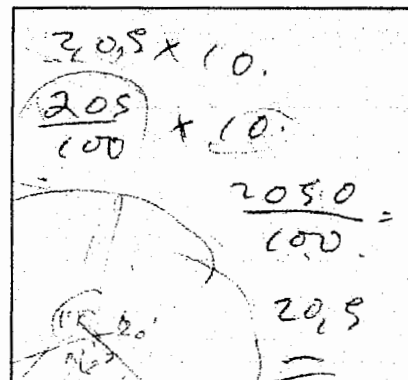 2,05 × 10.
205/100 × 10.
2050/100 =
20,5